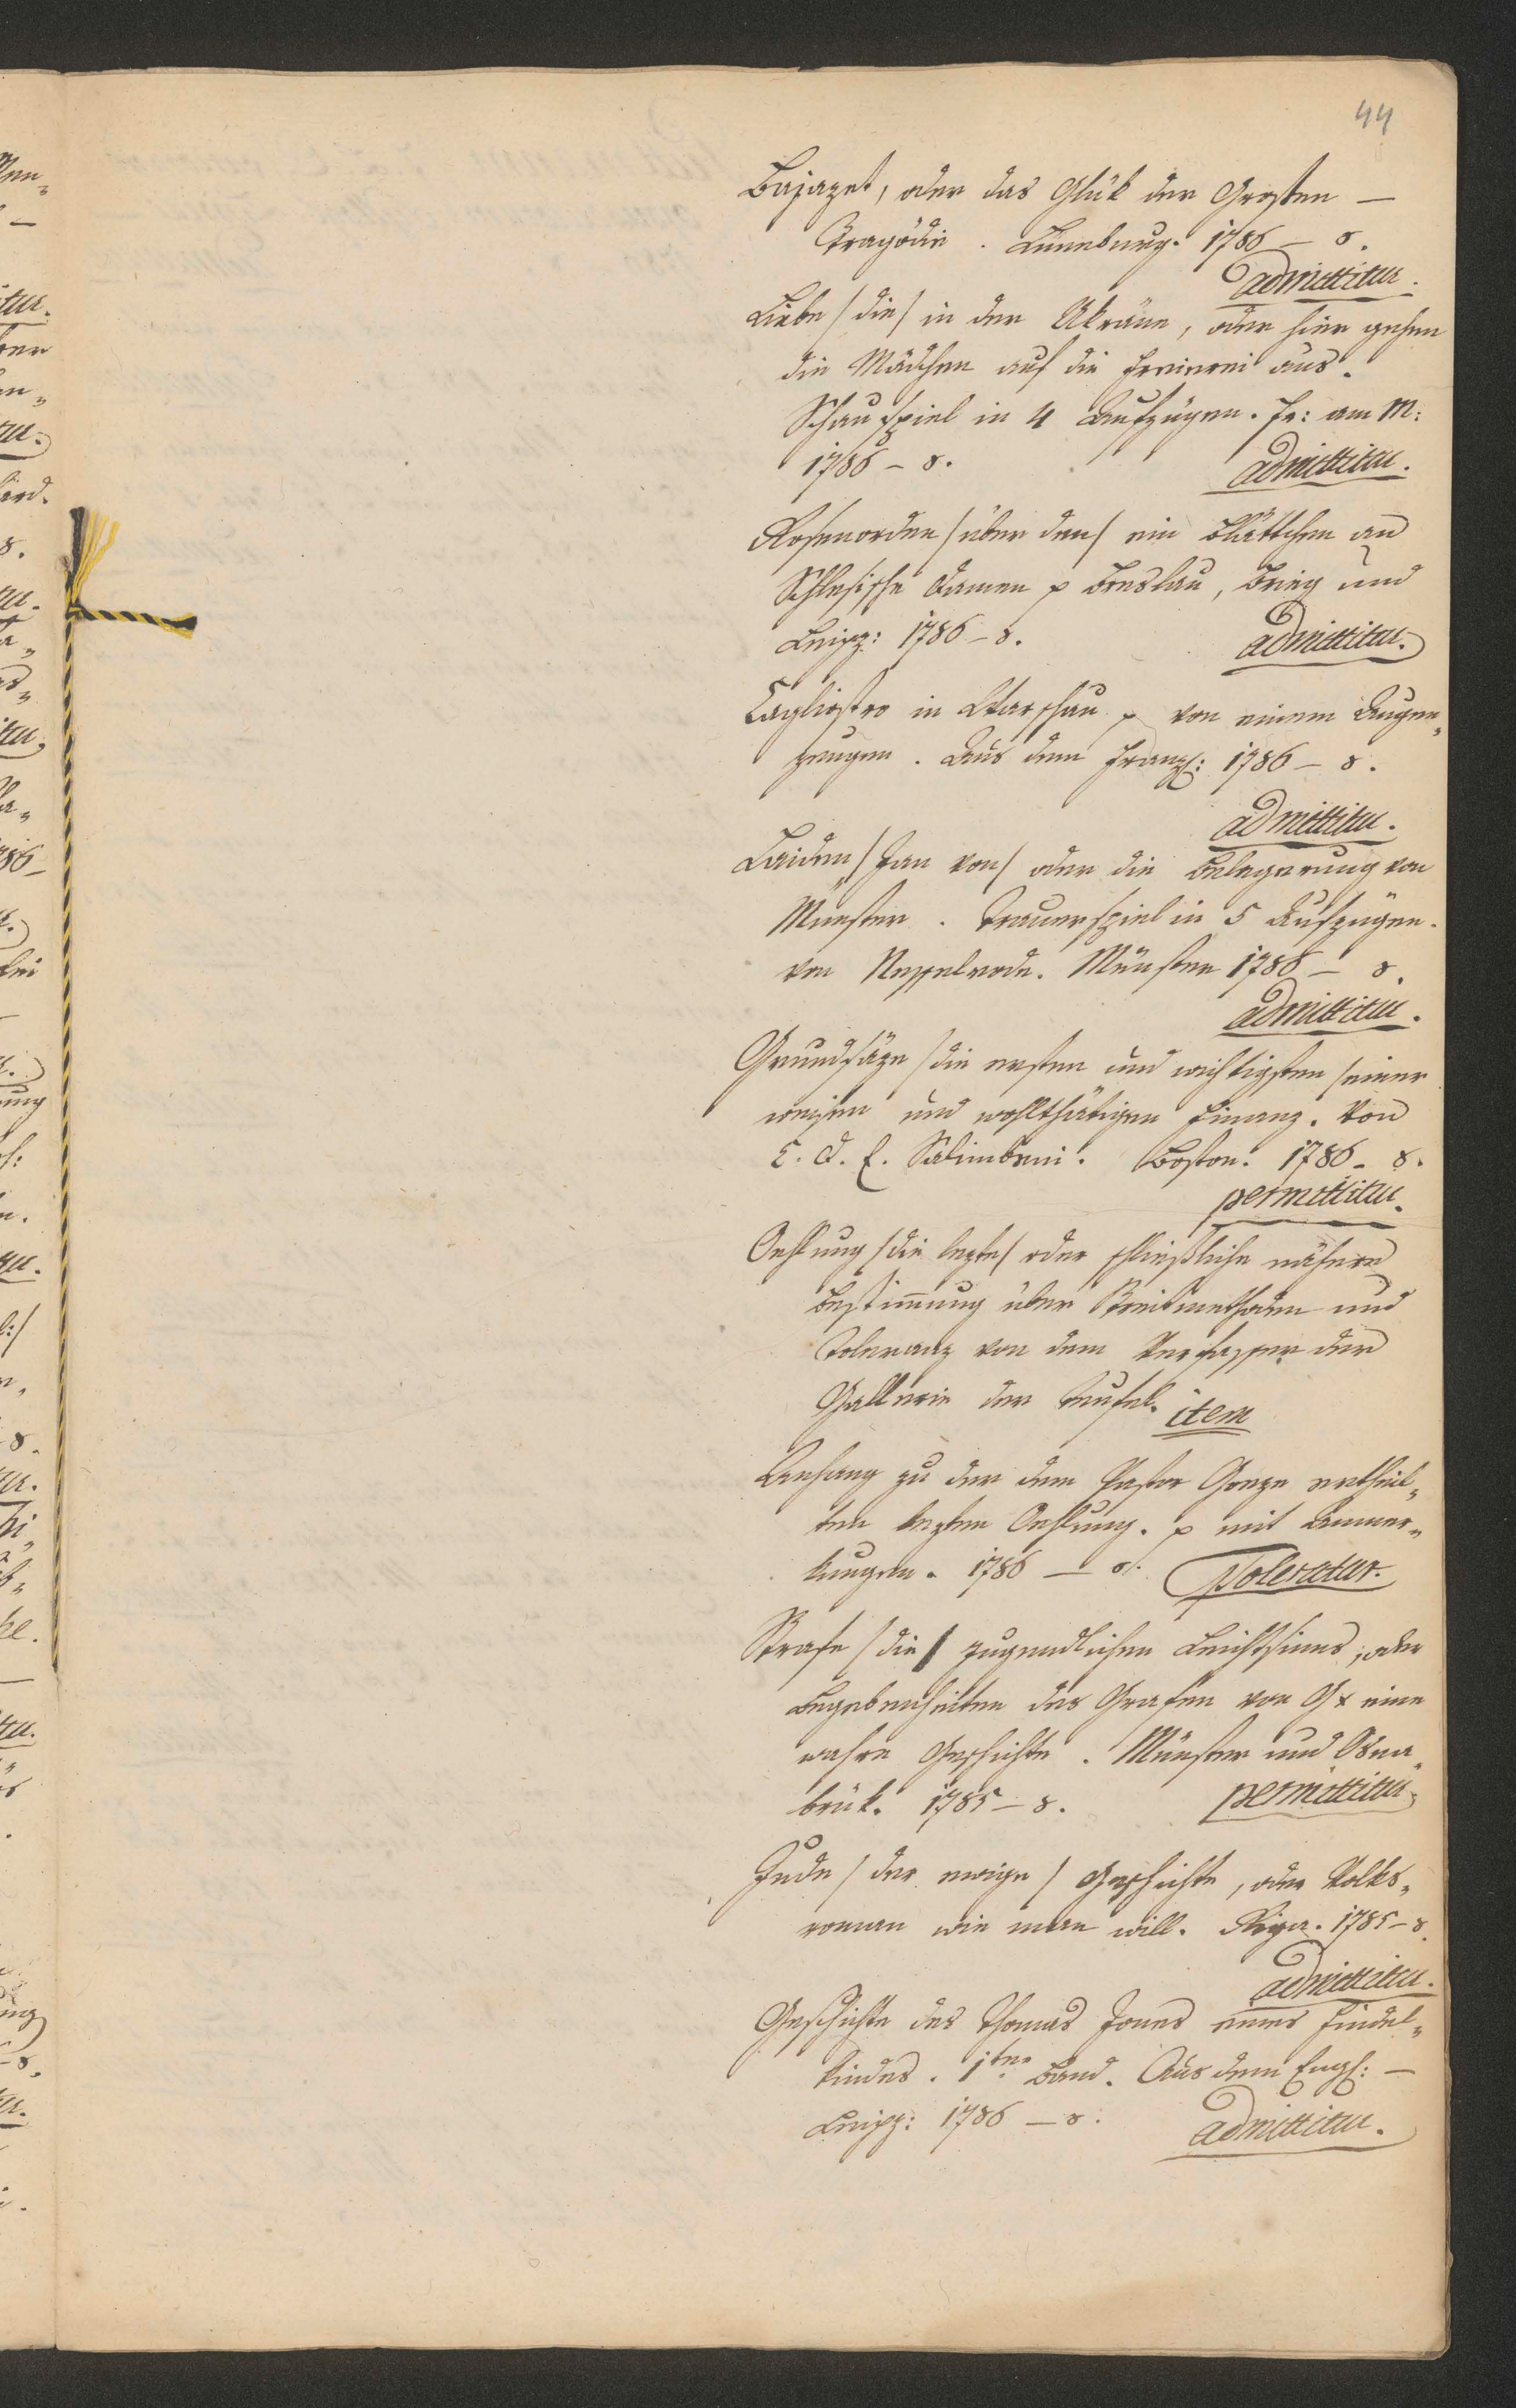 44
Bajazet, oder das Glük der Grosten —
Tragödie. Lüneburg. 1786 — 8.
admittitur.
Liebe /die/ in der Ukräne, oder hier gehen
die Mädchen auf die Freierei aus.
Schauspiel in 4 Aufzügen. Fr: am M:
1786 – 8.
admittitur.
Rosenorden /über den/ ein Blättchen an
Schlesische Damen p Breslau, Brieg und
Leipz: 1786 – 8.
admittitur.
Cagliostro in Warschau p von einem Augen„
zeugen. Aus dem Franz: 1786 – 8.
admittitur.
Leiden /Jan von/ oder die Belagerung von
Münster. Trauerspiel in 5 Aufzügen.
von Nesselrode. Münster 1786 – 8.
admittitur.
Grundsäze /die ersten und wichtigsten/ einer
weisen und wohlthätigen Finanz. Von
C. D. E. Salimbeni. Boston. 1786 – 8.
permittitur.
Oehlung /die lezte/ oder schließliche nähere
Bestimmung über Streitmethoden und
Toleranz von dem Verfasser der
Gallerie der Teufel. item
Anhang zu der dem Pastor Goeze ertheil„
ten lezten Oehlung. p mit Anmer„
kungen. 1786 — 8. Toleratur.
Strafe /die/ jugendlichen Leichtsinns, oder
Begebenheiten des Grafen von G* eine
wahre Geschichte. Münster und Osna„
brük. 1785 – 8.
permittitur.
Jude /der ewige/ Geschichte, oder Volks„
roman wie man will. Riga. 1785 – 8.
admittitur.
Geschichte des Thomas Jones eines Findel„
kindes. 1ter Band. Aus dem Engl: —
Leipz: 1786 — 8.
admittitur.